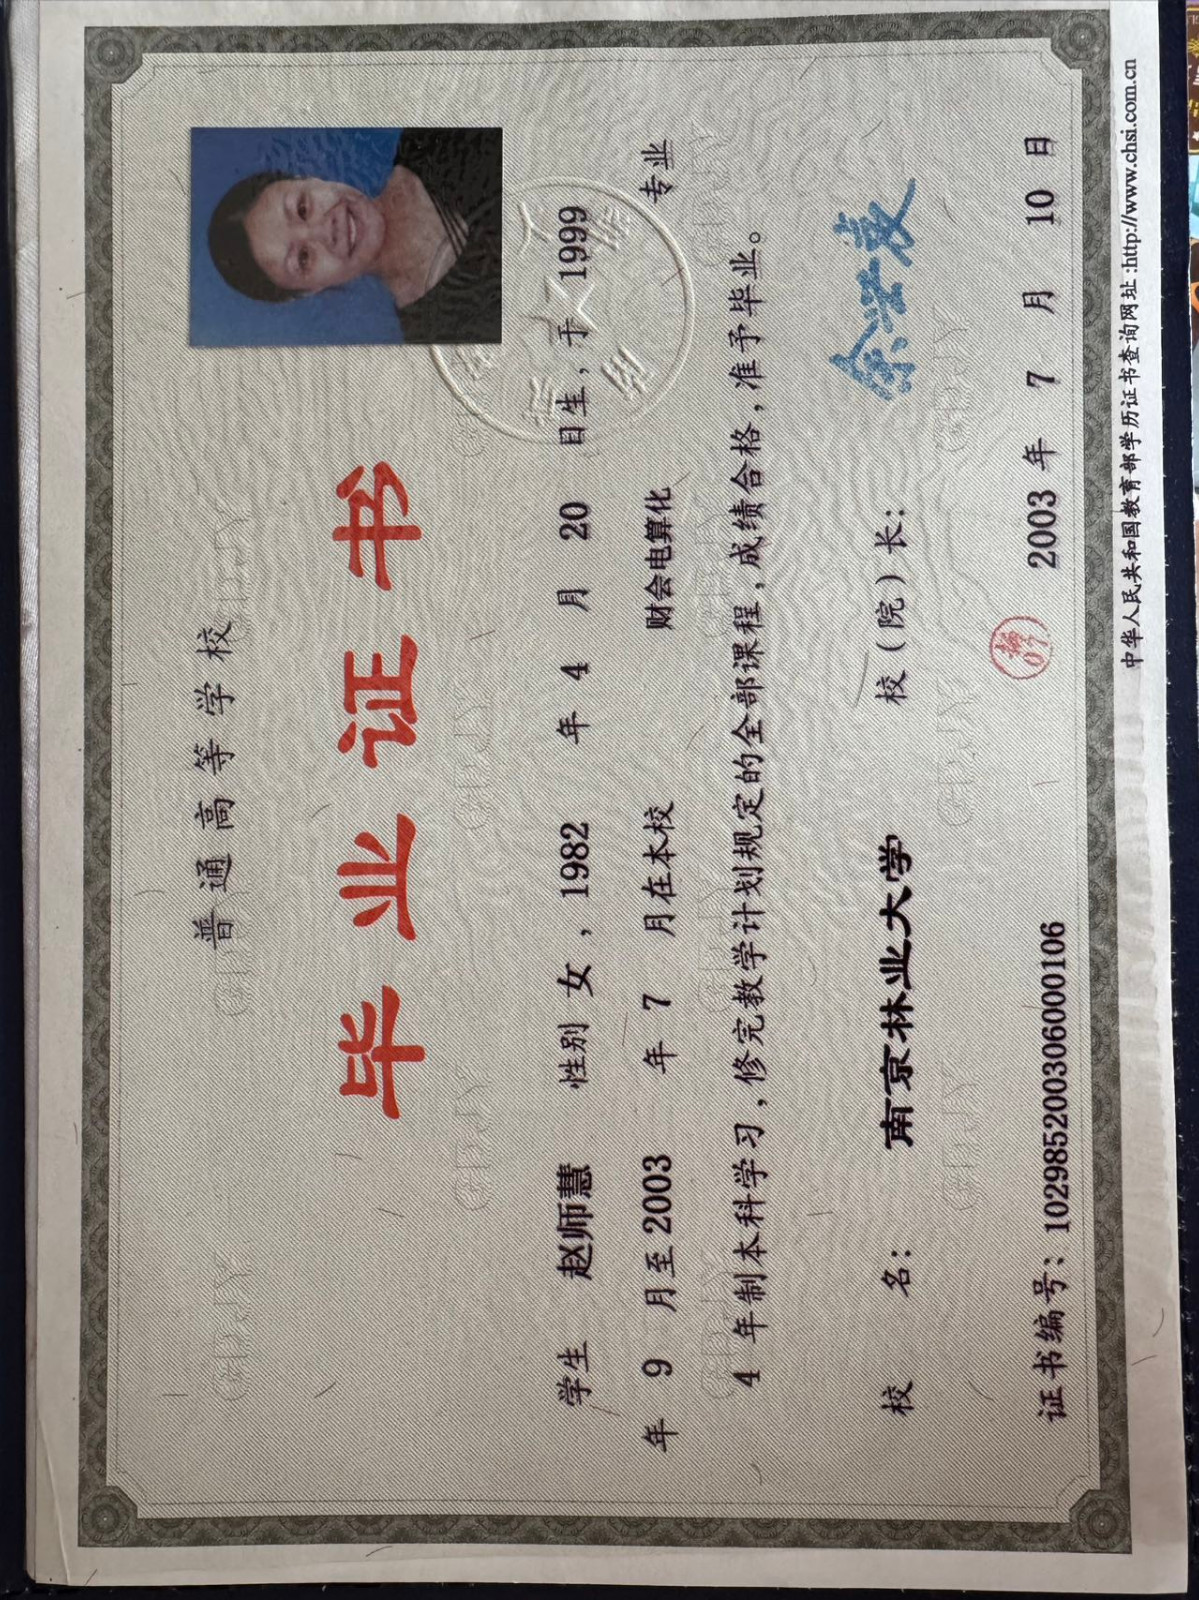 普通高等学校
毕业证书
学生 赵师慧 性别 女，1982 年 4 月 20 日生，于 1999
年 9 月至 2003 年 7 月在本校 财会电算化 专业
4 年制本科学习，修完教学计划规定的全部课程，成绩合格，准予毕业。
校 名： 南京林业大学 校（院）长：
证书编号：102985200306000106 2003 年 7 月 10 日
中华人民共和国教育部学历证书查询网址:http://www.chsi.com.cn